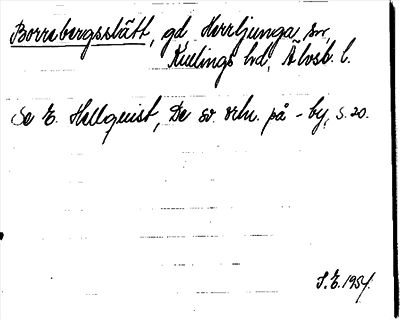 Borrebergsslätt, gd Herrljunga sn,
Kullings hd, Älvsb. l.
Se E. Hellquist, De sv. ortn. på -by, s. 20.
S.E. 1954.